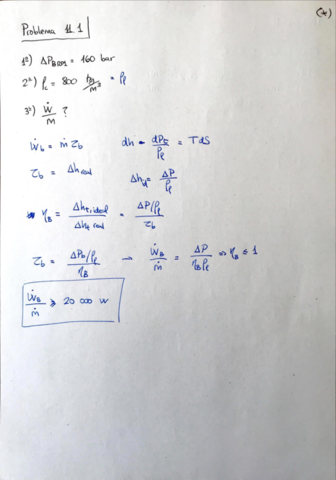 (*)
Problema 11.1
1º) ΔP_BRM = 160 bar
2º) ρ_L = 800 kg/m³ = ρ_l
3º) Ẇ/ṁ ?
Ẇ_b = ṁ τ_b    dh - dP_t/ρ_l = TdS
τ_b = Δh_real    Δh_id = ΔP/ρ_l
η_B = Δh_t,ideal/Δh_t real = ΔP/ρ_l/τ_b
τ_b = ΔP_b/ρ_l/η_B → Ẇ_B/ṁ = ΔP/η_B ρ_l η_B ≤ 1
Ẇ_B/ṁ ≥ 20 000 W